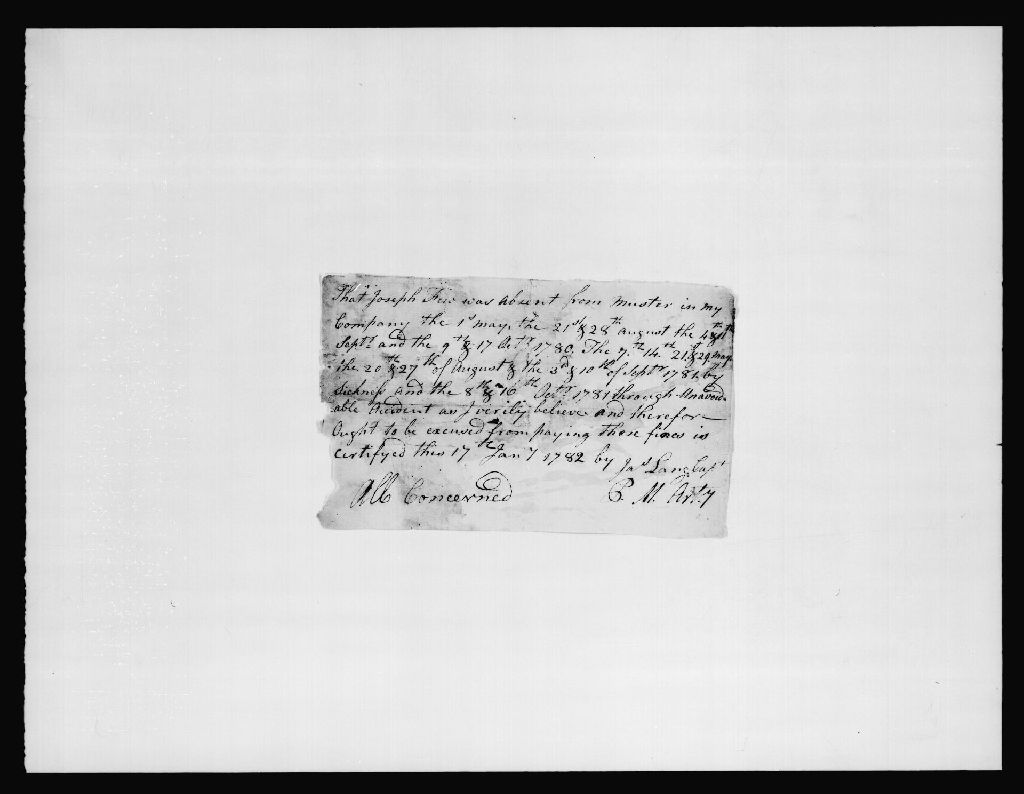 That Joseph Few was absent from muster in my
Company the 1st may. the 21st & 28th august the 4th &
Septr and the 9th & 17 Octr 1780. The 7th 14th 21st & 29 may
the 20th & 27th of August & the 3d & 10th of Septr 1781 by
Sickness and the 8th & 16th Octr 1781 through Unavoid-
able Accident as I verily believe and therefore
Ought to be excused from paying those fines is
certifyed this 17th Jany 1782 by Jas Lang Capt
All Concerned P. M. Arty